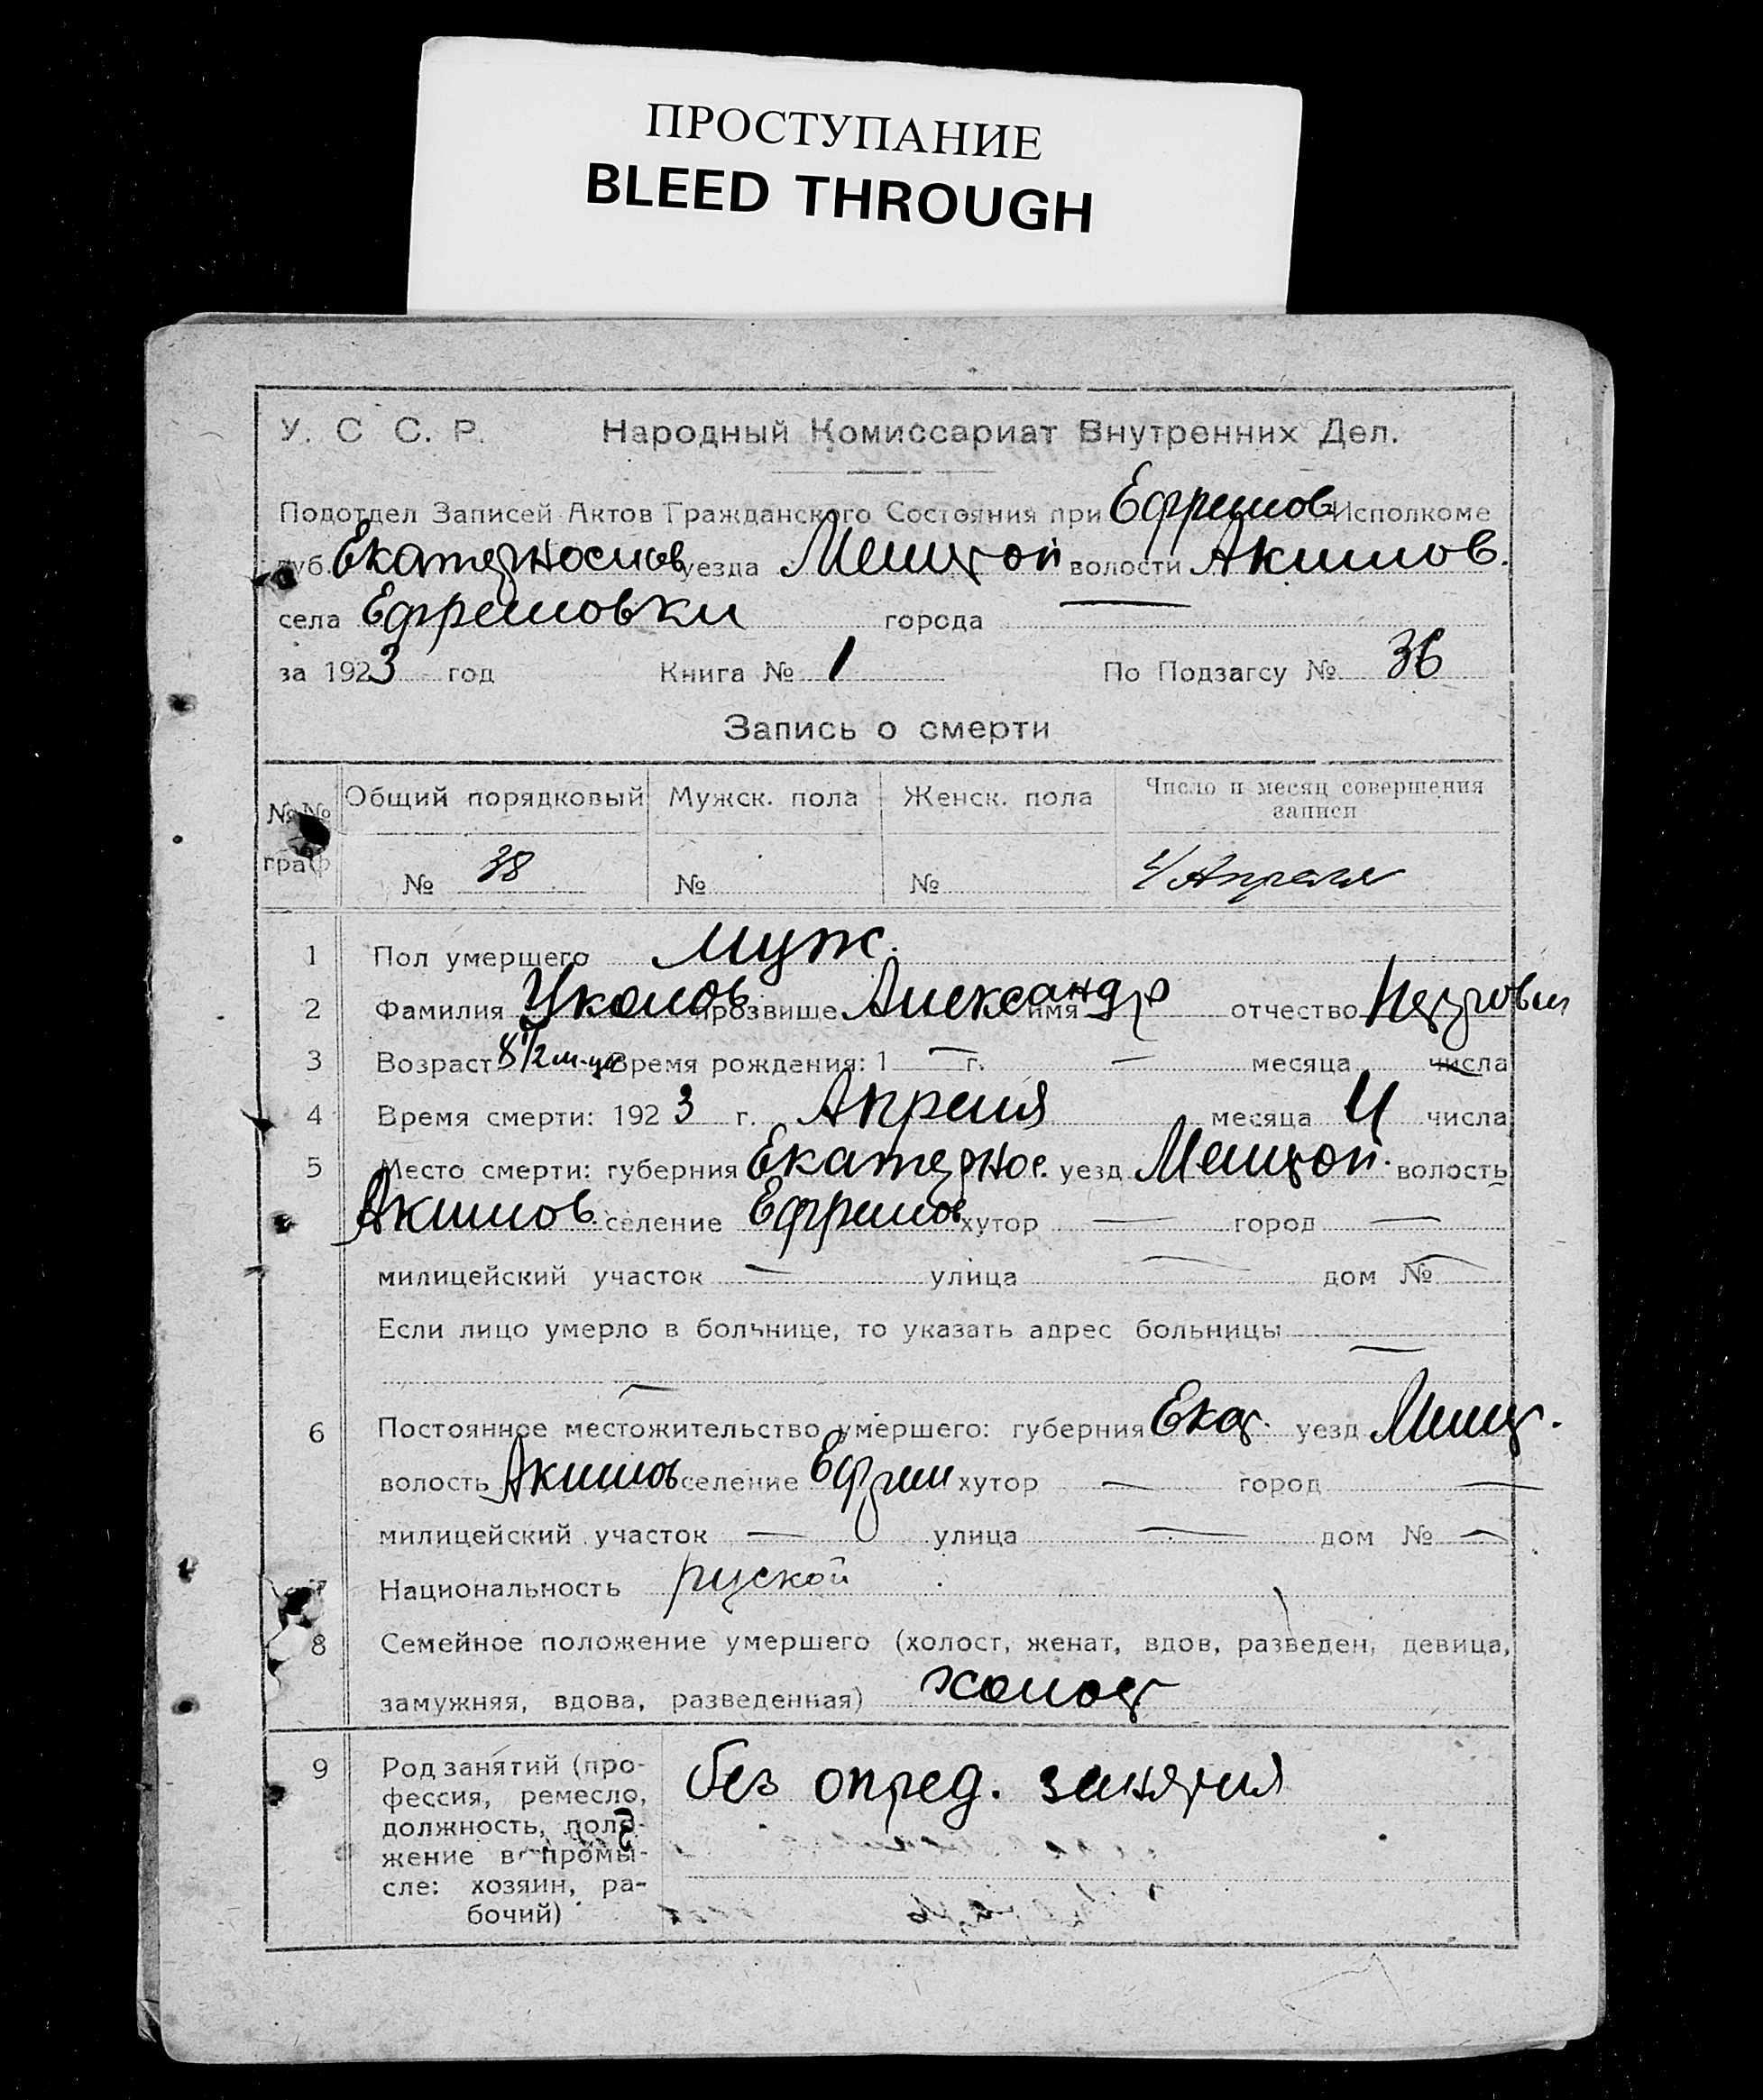 ПРОСТУПАНИЕ
BLEED THROUGH
У. С. С. Р. Народный Комиссариат Внутренних Дел.
Подотдел Записей Актов Гражданского Состояния при Ефремов Исполкоме
губ. Екатернослав уезда Мелитой волости Акимов.
села Ефремовки города —
за 1923 год Книга № 1 По Подзагсу № 36
Запись о смерти
№№ граф Общий порядковый Мужск. пола Женск. пола Число и месяц совершения записи
№ 38 № № 4/Апреля
1 Пол умершего Муж.
2 Фамилия прозвище Александр имя отчество Петрович
3 Возраст 8 1/2 м-це Время рождения: 1 — г. — месяца числа
4 Время смерти: 1923 г. Апреля месяца 4 числа
5 Место смерти: губерния Екатернос. уезд Мелитоп. волость
Акимов. селение Ефремов хутор — город —
милицейский участок — улица — дом № —
Если лицо умерло в больнице, то указать адрес больницы —
—
6 Постоянное местожительство умершего: губерния Екат. уезд Мелит.
волость Акимов селение Ефрем хутор — город —
милицейский участок — улица — дом № —
7 Национальность руской
8 Семейное положение умершего (холост, женат, вдов, разведен, девица,
замужняя, вдова, разведенная) холост
9 Род занятий (про- без опред. занятия
фессия, ремесло,
должность, поло-
жение в промы-
сле: хозяин, ра-
бочий)